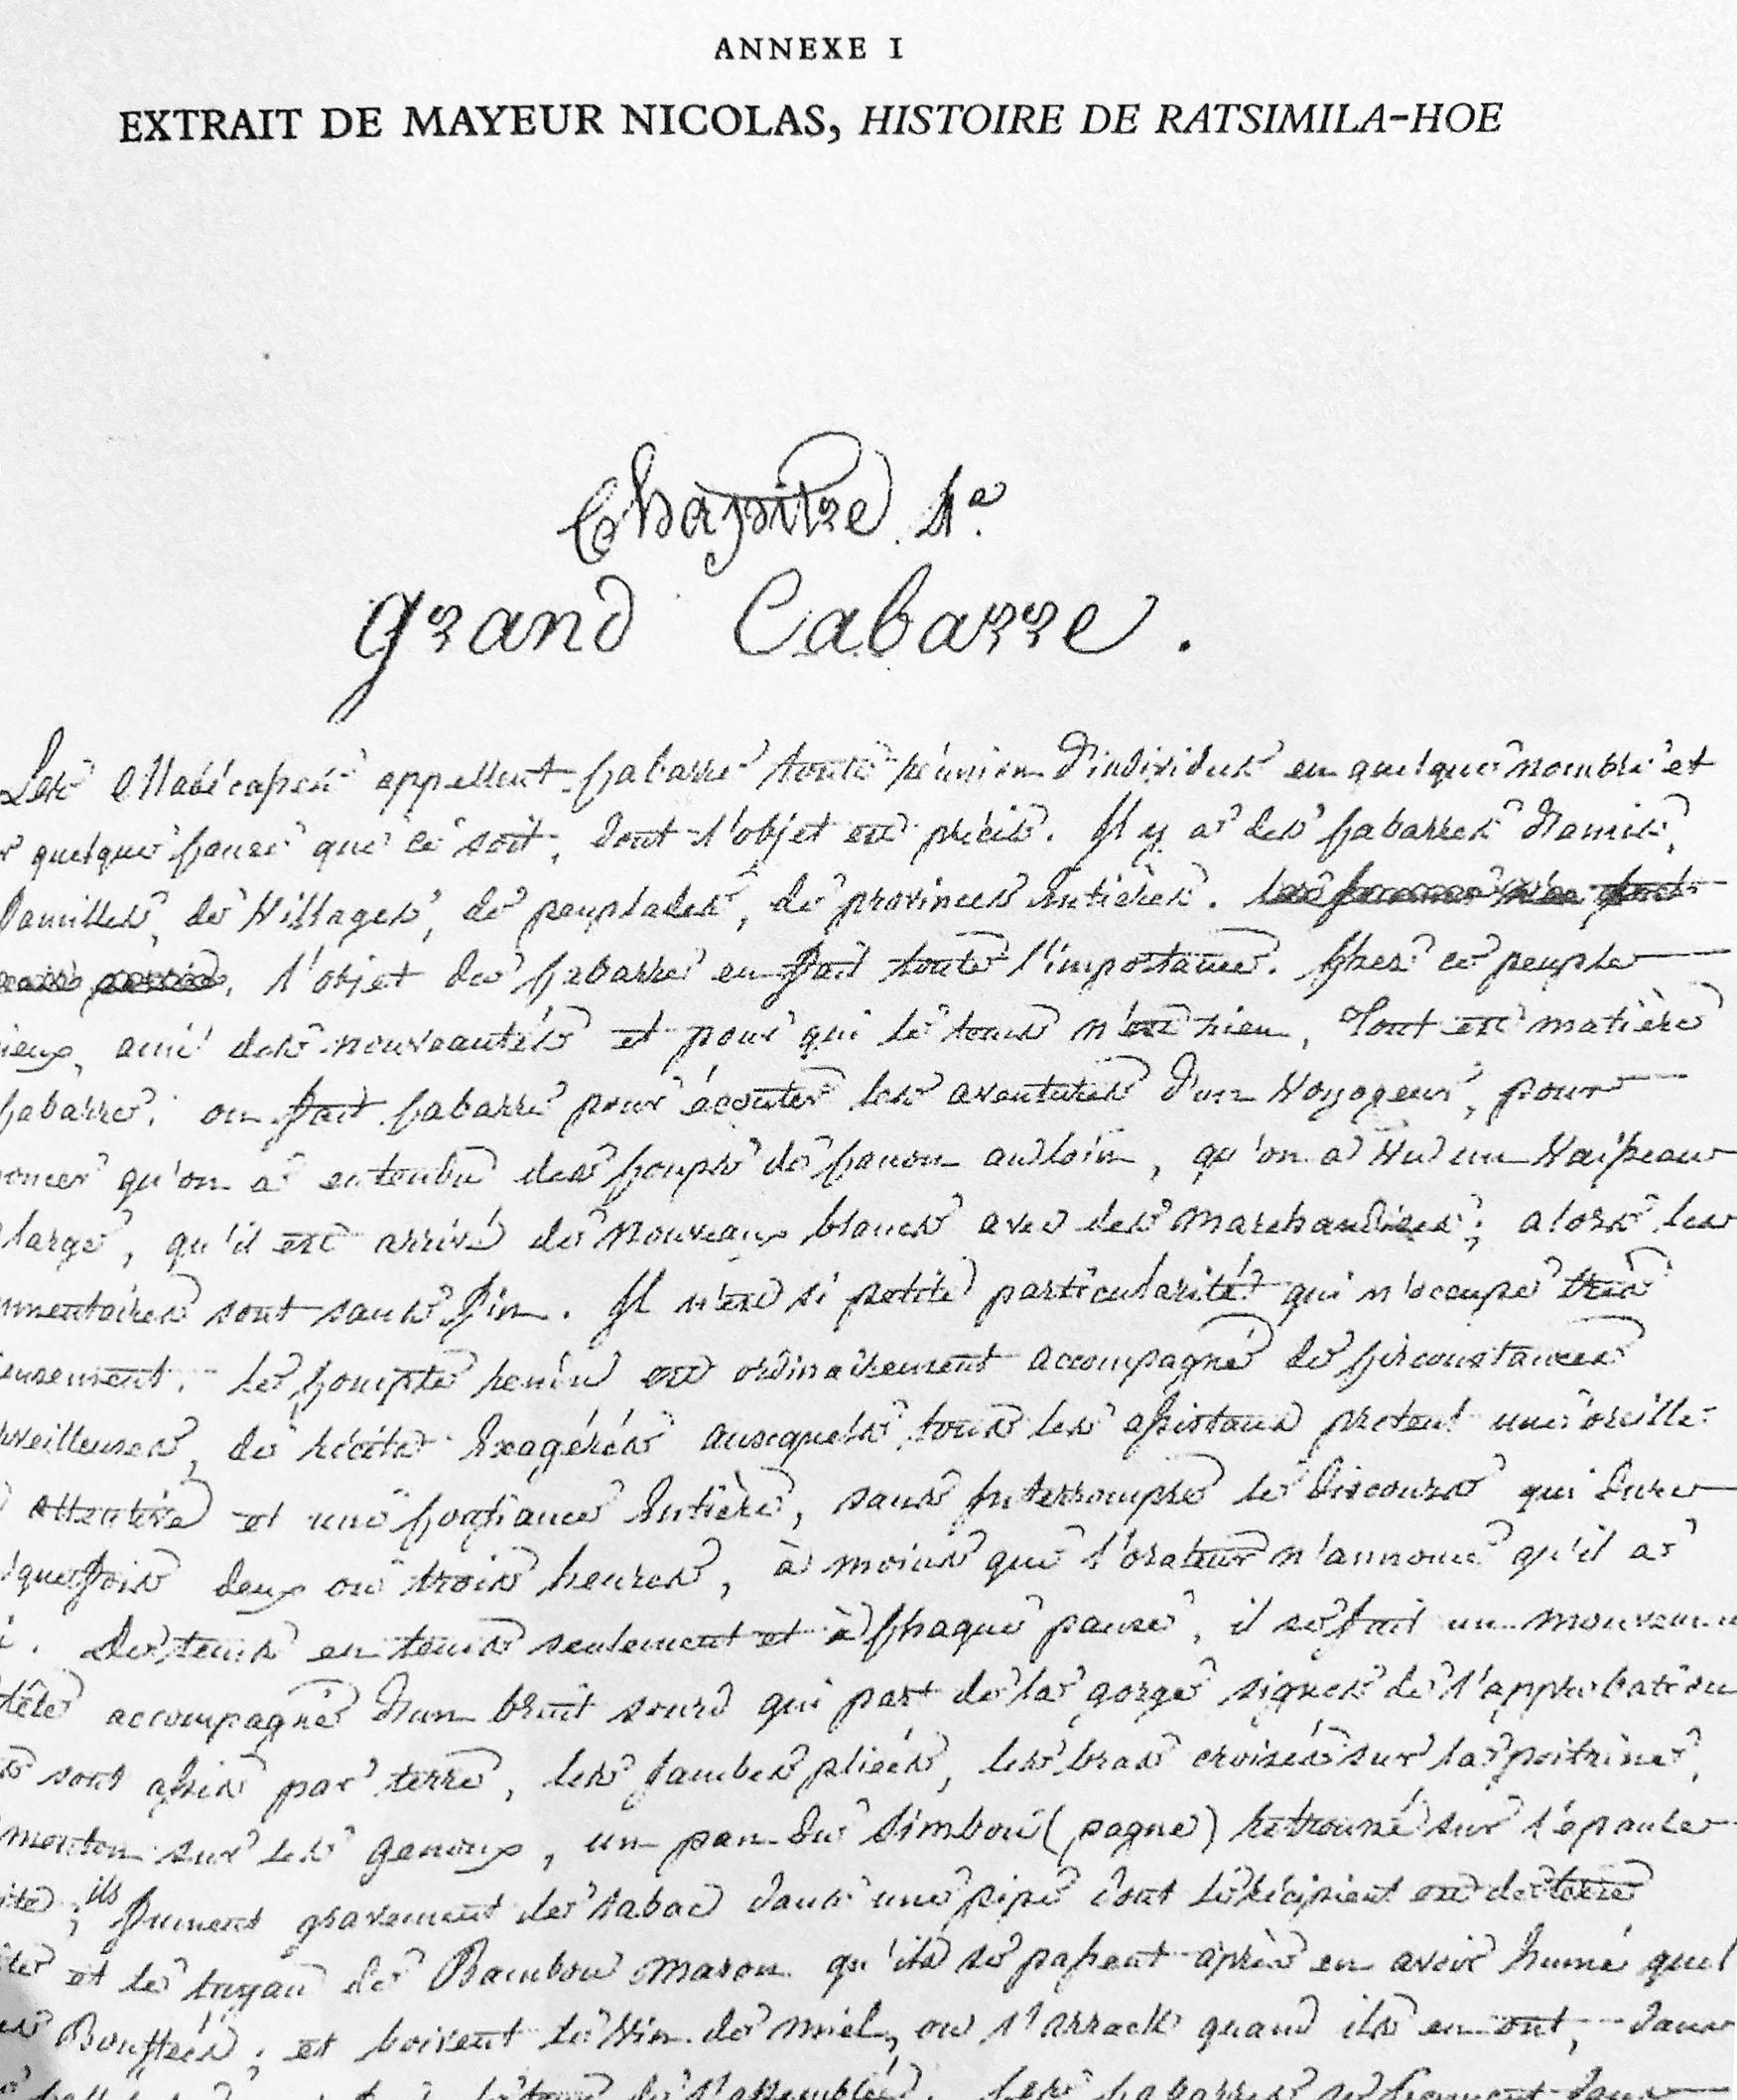 ANNEXE I
EXTRAIT DE MAYEUR NICOLAS, HISTOIRE DE RATSIMILA-HOE
Chapitre 1er.
Grand Cabarre.
Les Madécasses appellent Cabarre toute réunion d'individus en quelque nombre et
quelque cause que ce soit, dont l'objet est précis. Il y a des Cabarres d'amis,
familles, de Villages, de peuplades, de provinces Entières.
l'objet du Cabarre en fait toute l'importance. Chez ce peuple
ieux, ami des nouveautés et pour qui le tems n'est rien, Tout est matière
Cabarre; on fait Cabarre pour écouter les aventures d'un Voyageur, pour
oncer qu'on a entendu des Coups de Canon au loin, qu'on a Vu un Vaisseau
large, qu'il est arrivé de nouveaux blancs avec des marchandises; alors les
mmentaires sont sans fin. Il n'est si petite particularité qui n'occupe très
eusement. Le Compte rendu est ordinairement accompagné de Circonstances
rveilleuses, de récits Exagérés auxquels tous les assistans pretent une oreille
Attentive et une Confiance Entière, sans Interrompre le Discours qui dure
lquefois deux ou trois heures, à moins que l'orateur n'annonce qu'il a
i. De tems en tems seulement et à Chaque pause, il se fait un mouveme
tête accompagné d'un bruit sourd qui part de la gorge signes de l'approbation
s sont assis par terre, les Jambes pliées, les bras croisés sur la poitrine,
menton sur les genoux, un pan du Simbou (pagne) retroussé sur l'épaule
ite; ils fument gravement du tabac dans une pipe dont le récipient est de terre
ite et le tuyau de Bambou maron qu'ils se passent après en avoir humé quel
es Bouffées; et boivent le Vin de miel, ou l'arrack quand ils en ont, dans
de l'assemblée. Les Cabarres se tiennent dans